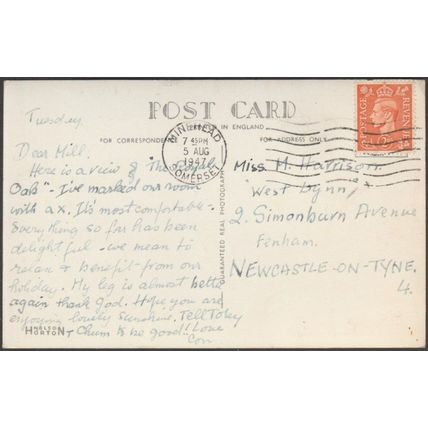 POST CARD
PRINTED IN ENGLAND
FOR CORRESPONDENCE
FOR ADDRESS ONLY
MINEHEAD
7 45PM
5 AUG
1947
SOMERSET
POSTAGE
REVENUE
GUARANTEED REAL PHOTOGRAPH
Tuesday
Dear Mill.
Here is a view of the "Royal
Oak" - I've marked our room
with a x. It's most comfortable -
Everything so far has been
delightful - we mean to
relax & benefit from our
holiday. My leg is almost better
again thank God. Hope you are
enjoying lovely sunshine. Tell Toby
Chum to be good!! Love
Con
NELSON
HORTON
Miss M. Harrison
West Lynn,
2. Simonburn Avenue
Fenham.
NEWCASTLE-ON-TYNE.
4.